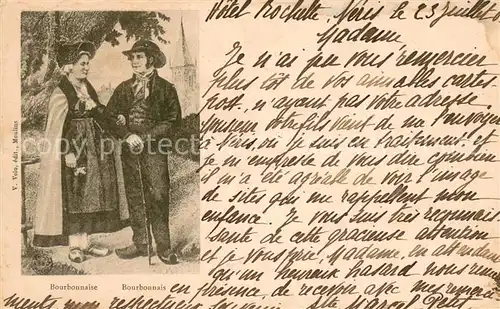 Hôtel Rochette. Néris le 23 juillet
Madame
Je n'ai pu vous remercier
plus tôt de vos aimables cartes
post. n'ayant pas votre adresse
Monsieur votre fils vient de me l'envoyer
à Néris, où je suis en traitement et
je m'empresse de vous dire combien
il m'a été agréable de voir l'image
de sites qui me rappellent mon
enfance. Je vous suis très reconnais
sante de cette gracieuse attention
et je vous prie, Madame, en attendant
qu'un heureux hasard nous remette
en présence, de recevoir avec mes remercie
ments, mon respectueux souvenir. Marcel Petit
V. Voir, édit., Moulins
Bourbonnaise Bourbonnais